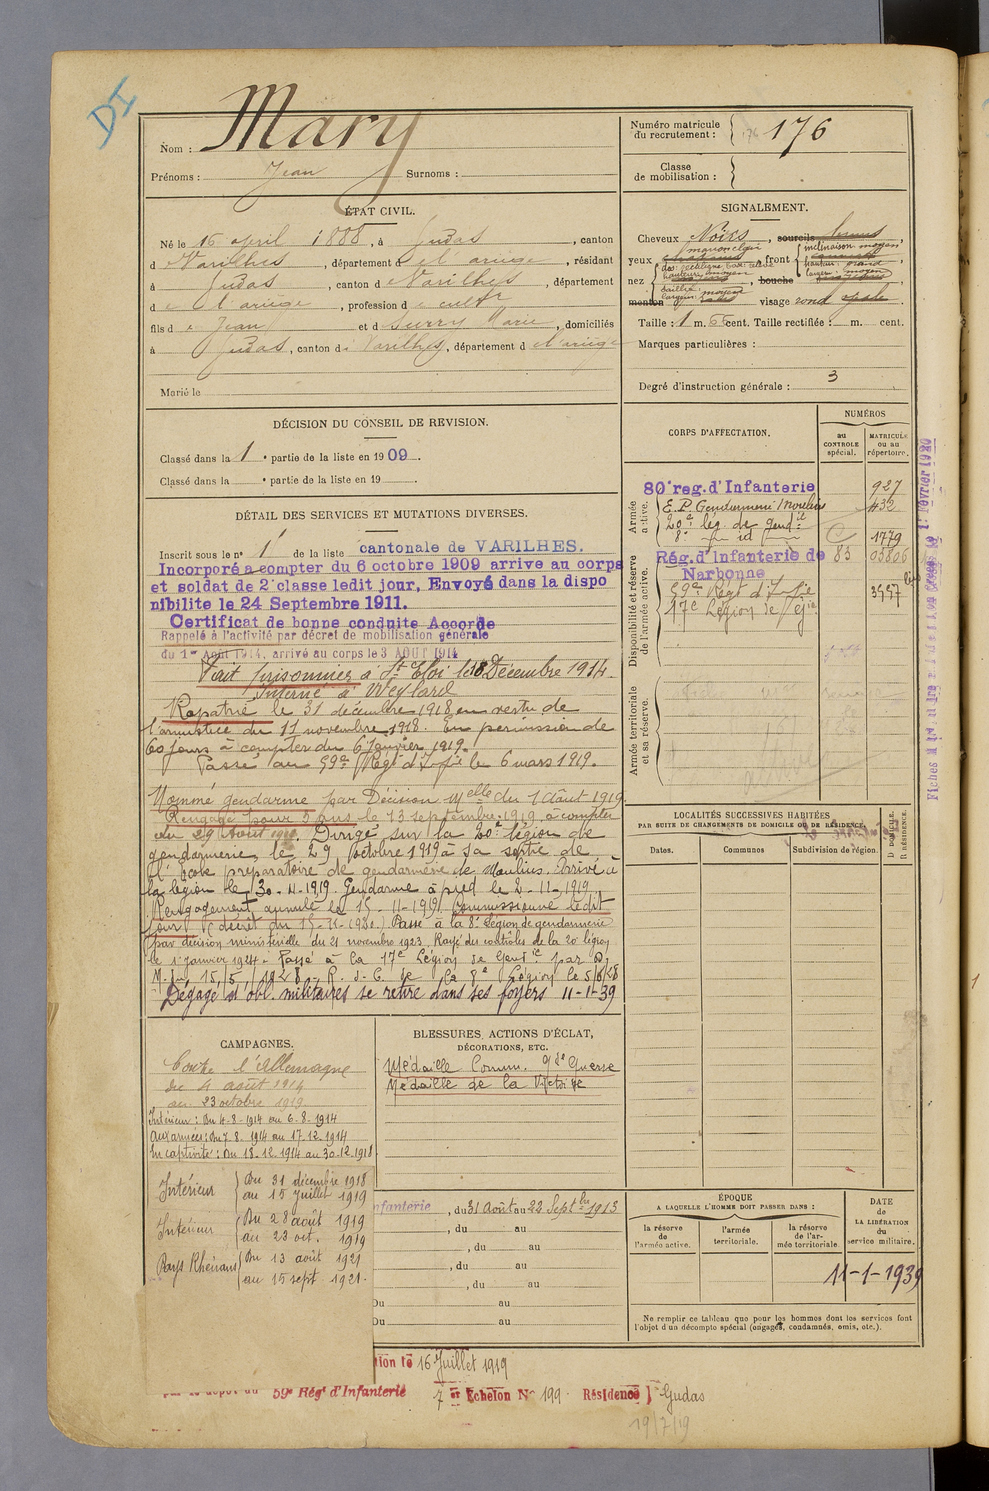 DI
Nom : Mary
Prénoms : Jean Surnoms :
Numéro matricule du recrutement : 176 176
Classe de mobilisation :
ÉTAT CIVIL.
Né le 16 april 1888, à Gudas, canton
d Varilhes, département d e l'ariège, résidant
à Gudas, canton d e Varilhes, département
d e l'ariège, profession d e cultr
fils d e Jean et d Surry Marie, domiciliés
à Gudas, canton d Varilhes, département d e l'ariège
Marié le
SIGNALEMENT.
Cheveux Noirs, sourcils bruns,
yeux marron clair, front inclinaison moyen
hauteur: grand
largeur: moyen
nez dos: rectiligne, base:
hauteur: moyen
saillie: moyen
largeur: moyen
bouche
menton visage rond
Taille : 1 m. 66 cent. Taille rectifiée : m. cent.
Marques particulières :
Degré d'instruction générale : 3
DÉCISION DU CONSEIL DE REVISION.
Classé dans la 1 e partie de la liste en 1909.
Classé dans la e partie de la liste en 19
DÉTAIL DES SERVICES ET MUTATIONS DIVERSES.
Inscrit sous le n° 1 de la liste cantonale de VARILHES.
Incorporé a compter du 6 octobre 1909 arrive au corps
et soldat de 2e classe ledit jour, Envoyé dans la dispo
nibilite le 24 Septembre 1911.
Certificat de bonne conduite Accorde
Rappelé à l'activité par décret de mobilisation générale
du 1er Août 1914, arrivé au corps le 3 AOUT 1914
Fait prisonnier à St Eloi le 18 Décembre 1914.
Interné à Weylard
Rapatrié le 31 décembre 1918 en vertu de
l'armistice du 11 novembre 1918. En permission de
60 jours à compter du 6 Janvier 1919.
Passé au 59e Régt d'Infie le 6 mars 1919.
Nommé gendarme par Décision Melle du 1 Août 1919
Rengagé pour 5 ans le 13 septembre 1919 à compter
du 29 Août 1919. Dirigé sur la 20e légion de
gendarmerie, le 29 octobre 1919 à sa sortie de
l'Ecole préparatoire de gendarmerie de Moulins. Arrivé à
la légion le 30-11-1919. Gendarme à pied le 2-11-1919
Rengagement annulé le 15-11-1919 Commissionné ledit
jour (décret du 15-11-1920.) Passé à la 8e Légion de gendarmerie
par décision ministérielle du 21 novembre 1923, Rayé des contrôles de la 20e légion
le 1er Janvier 1924 - Passé à la 17e Légion de Gend ie par D.
M. du 15/5/1928. - R. d. C. de la 8e Légion le 5/6/28
Dégagé d'obl. militaires se retire dans ses foyers 11-1-39
CORPS D'AFFECTATION.
NUMÉROS
au CONTROLE spécial.
MATRICULE ou au répertoire.
Armée active.
80e reg. d'Infanterie 927
E. P. Gendarmerie Moulins 432
20e lég. de gendie
8e id C 1779
Disponibilité et réserve de l'armée active.
Rég. d'Infanterie de Narbonne 83 03806
59e Régt d'Infie 3557
17e Légion de Gie
Armée territoriale et sa réserve.
LOCALITÉS SUCCESSIVES HABITÉES
PAR SUITE DE CHANGEMENTS DE DOMICILE OU DE RÉSIDENCE.
Dates. Communes Subdivision de région. D DOMICILE. R RÉSIDENCE.
CAMPAGNES.
Contre l'Allemagne
du 4 août 1914
au 23 octobre 1919
Intérieur : Du 4-8-1914 au 6-8-1914
Aux armées : Du 7-8-1914 au 17-12-1914
En captivité : Du 18-12-1914 au 30-12-1918
Intérieur Du 31 décembre 1918
au 15 juillet 1919
Intérieur Du 28 août 1919
au 23 oct. 1919
Pays Rhénans Du 13 août 1921
au 15 sept 1921.
BLESSURES, ACTIONS D'ÉCLAT,
DÉCORATIONS, ETC.
Médaille Comm. gde Guerre
Médaille de la Victoire
nfanterie, du 31 Août au 22 Septbre 1913
, du au
, du au
, du au
, du au
Du au
Du au
ÉPOQUE
A LAQUELLE L'HOMME DOIT PASSER DANS :
la réserve de l'armée active.
l'armée territoriale.
la réserve de l'armée territoriale.
DATE de LA LIBÉRATION du service militaire.
11-1-1939
Ne remplir ce tableau que pour les hommes dont les services font
l'objet d'un décompte spécial (engagés, condamnés, omis, etc.).
tion le 16 Juillet 1919
par le dépôt du 59e Régt d'Infanterie 7 er Echelon N° 199 Résidence Gudas
19/7/19